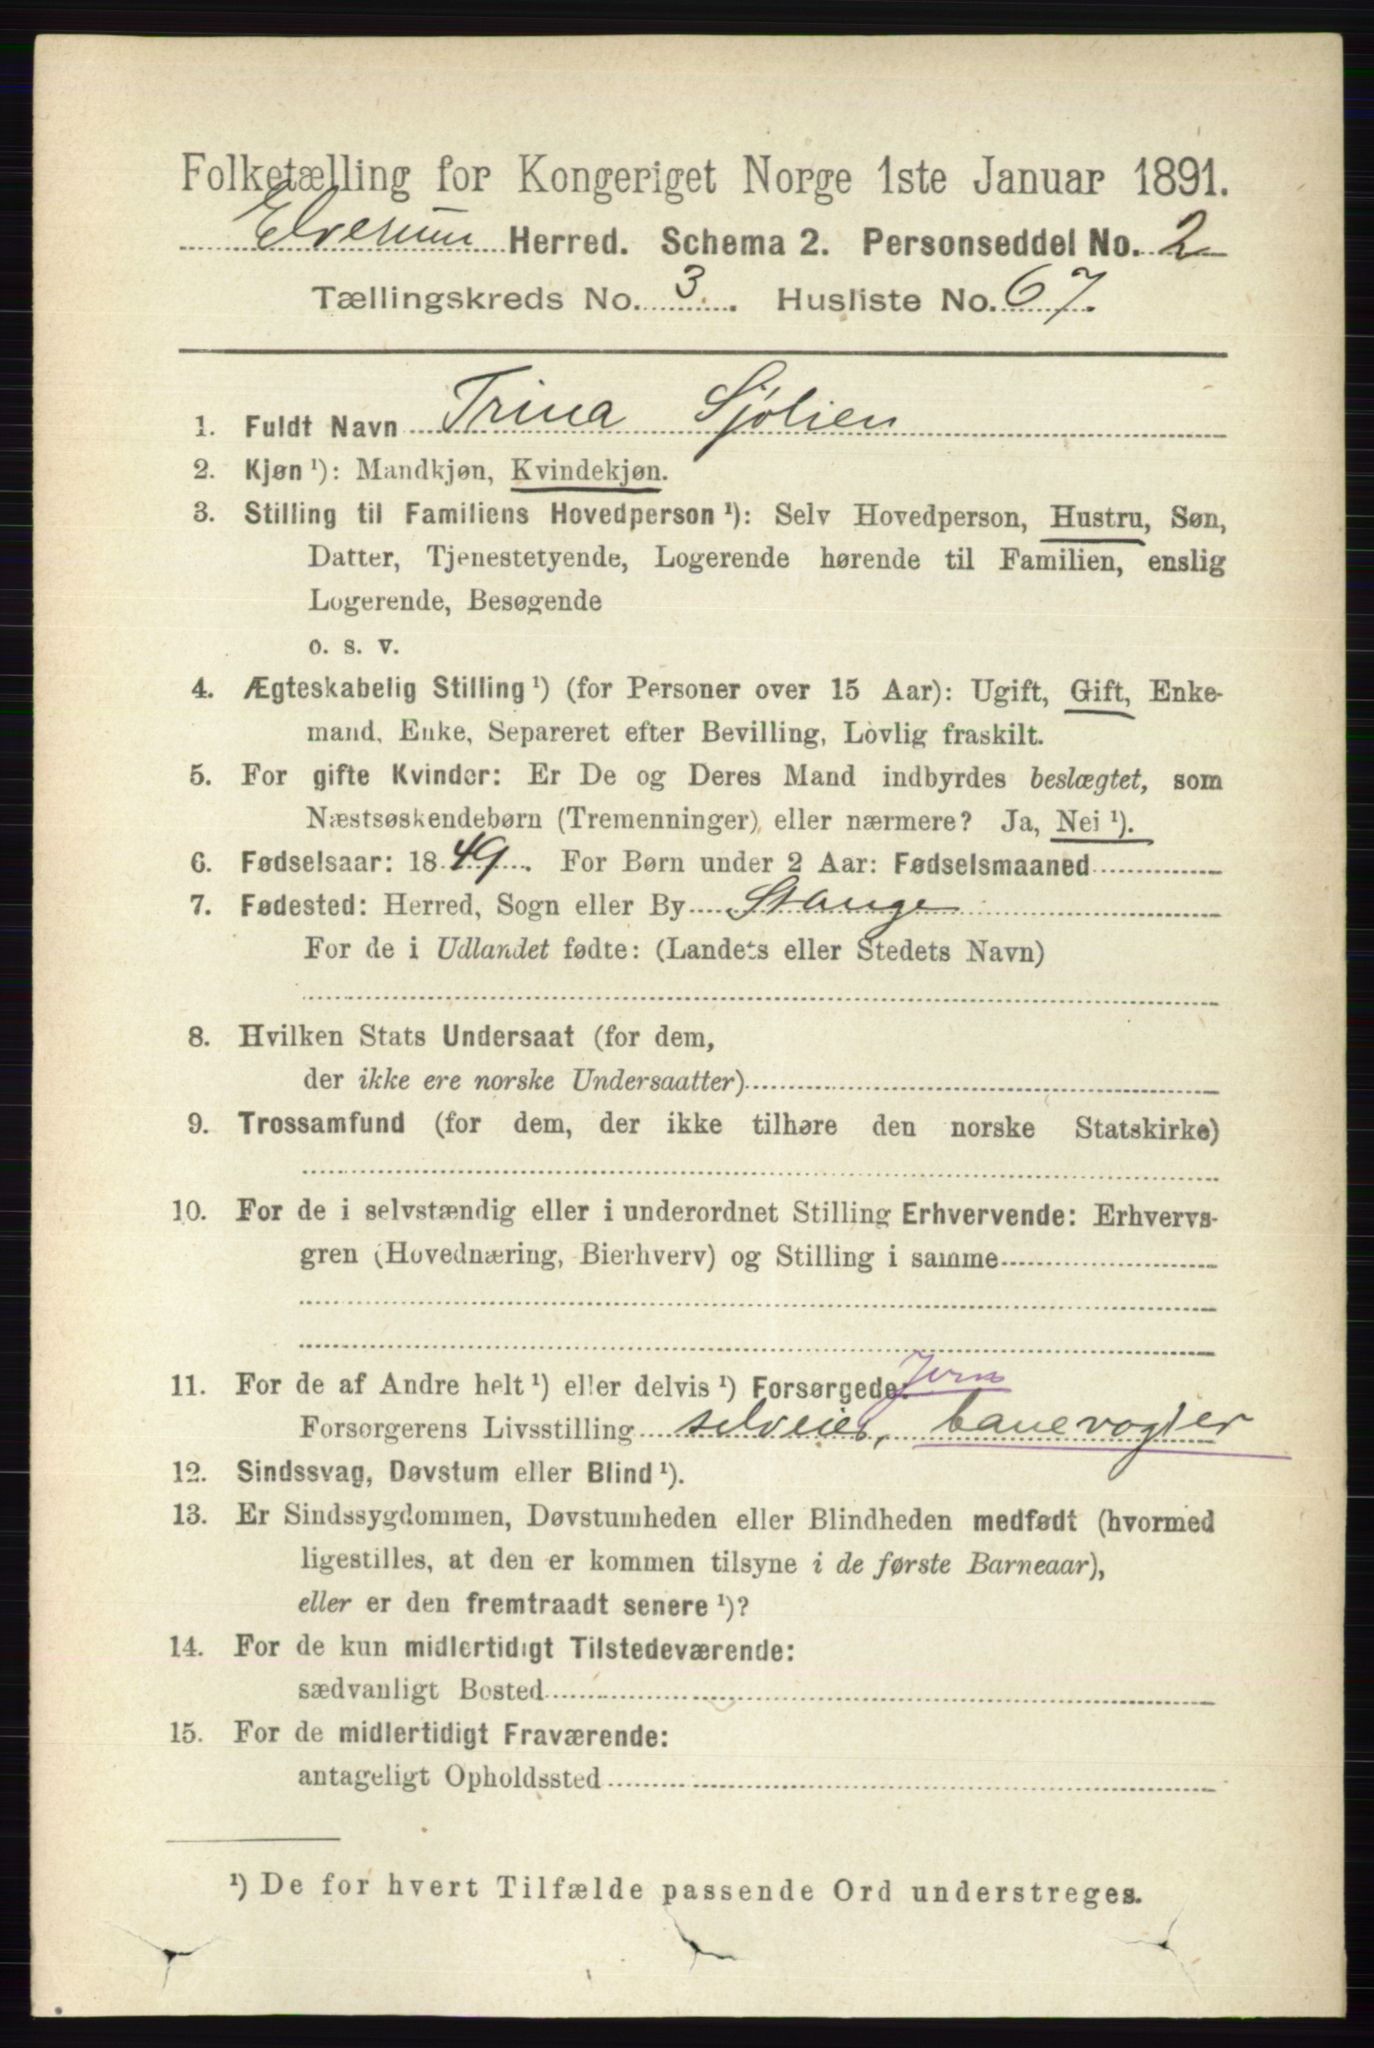 Folketælling for Kongeriget Norge 1ste Januar 1891.
Elverum Herred. Schema 2. Personseddel No. 2
Tællingskreds No. 3. Husliste No. 67.
1. Fuldt Navn Trina Sjølien
2. Kjøn ¹): Mandkjøn, Kvindekjøn.
3. Stilling til Familiens Hovedperson ¹): Selv Hovedperson, Hustru, Søn,
Datter, Tjenestetyende, Logerende hørende til Familien, enslig
Logerende, Besøgende
o. s. v.
4. Ægteskabelig Stilling ¹) (for Personer over 15 Aar): Ugift, Gift, Enke-
mand, Enke, Separeret efter Bevilling, Lovlig fraskilt.
5. For gifte Kvinder: Er De og Deres Mand indbyrdes beslægtet, som
Næstsøskendebørn (Tremenninger) eller nærmere? Ja, Nei ¹).
6. Fødselsaar: 1849. For Børn under 2 Aar: Fødselsmaaned
7. Fødested: Herred, Sogn eller By Stange
For de i Udlandet fødte: (Landets eller Stedets Navn)
8. Hvilken Stats Undersaat (for dem,
der ikke ere norske Undersaatter)
9. Trossamfund (for dem, der ikke tilhøre den norske Statskirke)
10. For de i selvstændig eller i underordnet Stilling Erhvervende: Erhvervs-
gren (Hovednæring, Bierhverv) og Stilling i samme
11. For de af Andre helt ¹) eller delvis ¹) Forsørgede: Jern
Forsørgerens Livsstilling selveier, banevogter
12. Sindssvag, Døvstum eller Blind ¹).
13. Er Sindssygdommen, Døvstumheden eller Blindheden medfødt (hvormed
ligestilles, at den er kommen tilsyne i de første Barneaar),
eller er den fremtraadt senere ¹)?
14. For de kun midlertidigt Tilstedeværende:
sædvanligt Bosted
15. For de midlertidigt Fraværende:
antageligt Opholdssted
¹) De for hvert Tilfælde passende Ord understreges.